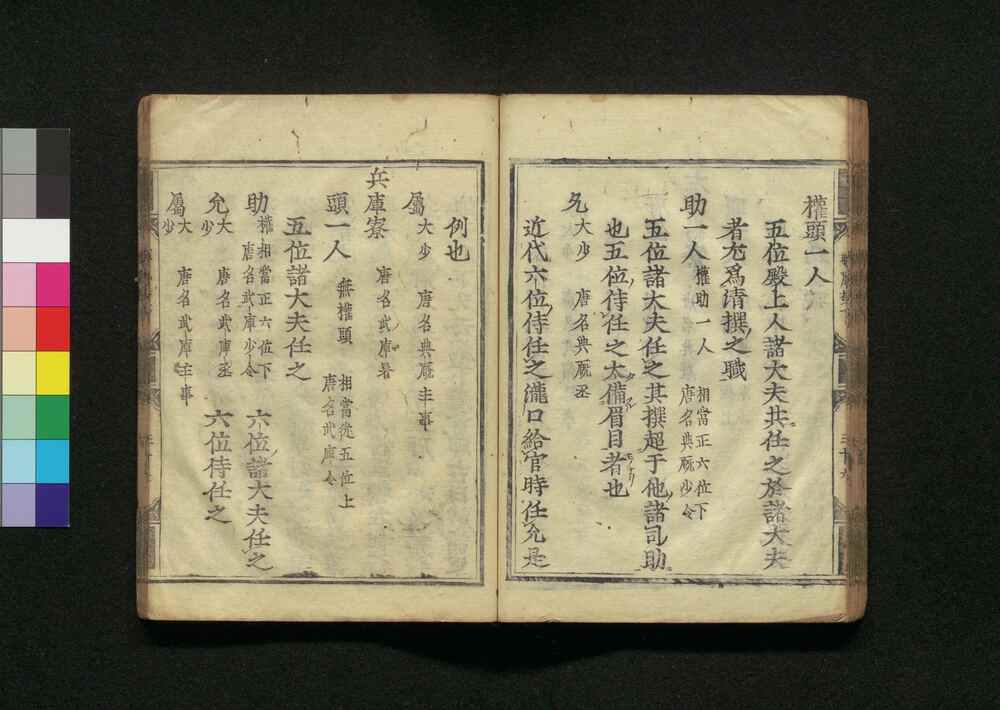 權頭一人
五位殿上人諸大夫共任之於諸大夫
者尤爲清撰之職
助一人 權助一人 相當正六位下
唐名典廐少令
五位諸大夫任之其撰超于他諸司助
也五位侍任之太備眉目者也
允 大少 唐名典廐丞
近代六位侍任之瀧口給官時任允是
例也
屬 大少 唐名典廐主事
兵庫寮 唐名武庫署
頭一人 無權頭 相當從五位上
唐名武庫令
五位諸大夫任之
助 權 相當正六位下
唐名武庫少令 六位諸大夫任之
允 大少 唐名武庫丞 六位侍任之
屬 大少 唐名武庫主事